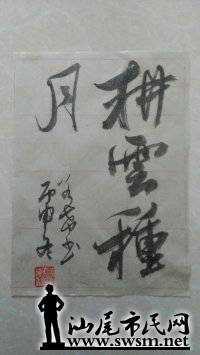 耕雲種
月
丙申冬
汕尾市民网
www.swsm.net